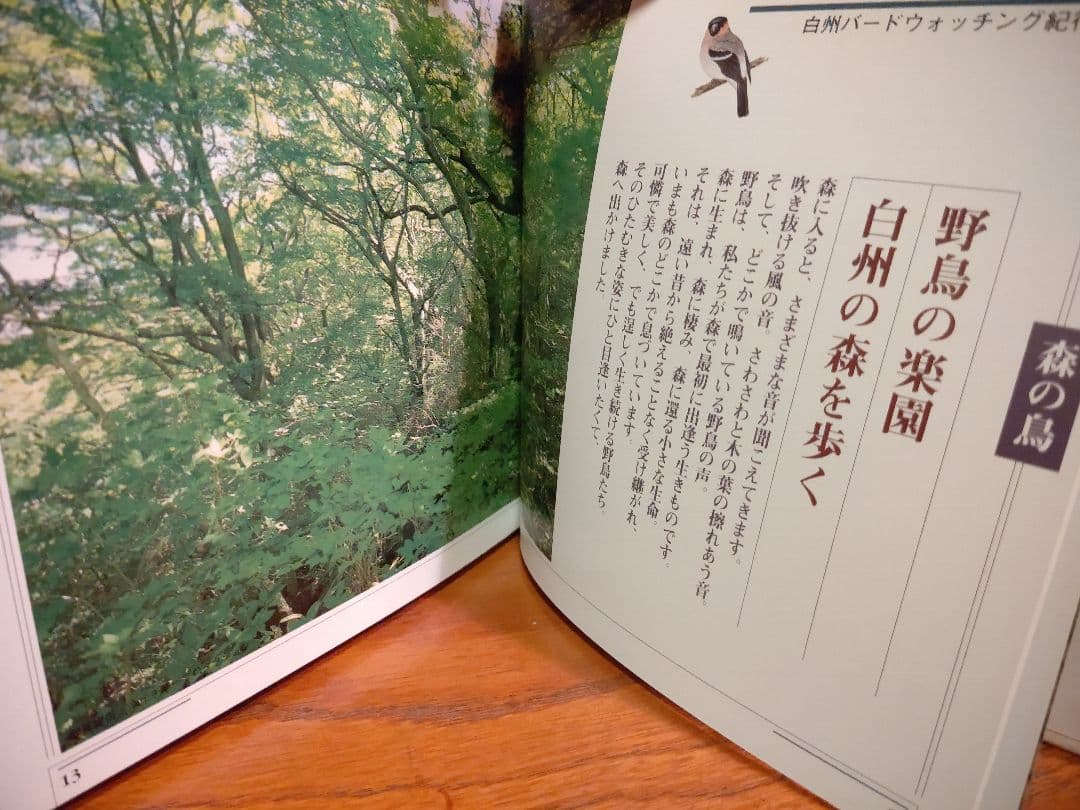 白州バードウォッチング紀行
森の鳥
野鳥の楽園
白州の森を歩く
森に入ると、さまざまな音が聞こえてきます。
吹き抜ける風の音。さわさわと木の葉の擦れあう音。
そして、どこかで鳴いている野鳥の声。
野鳥は、私たちが森で最初に出逢う生きものです。
森に生まれ、森に棲み、森に還る小さな生命。
それは、遠い昔から絶えることなく受け継がれ、
いまも森のどこかで息づいています。
可憐で美しく、でも逞しく生き続ける野鳥たち。
そのひたむきな姿にひと目逢いたくて、
森へ出かけました。
13